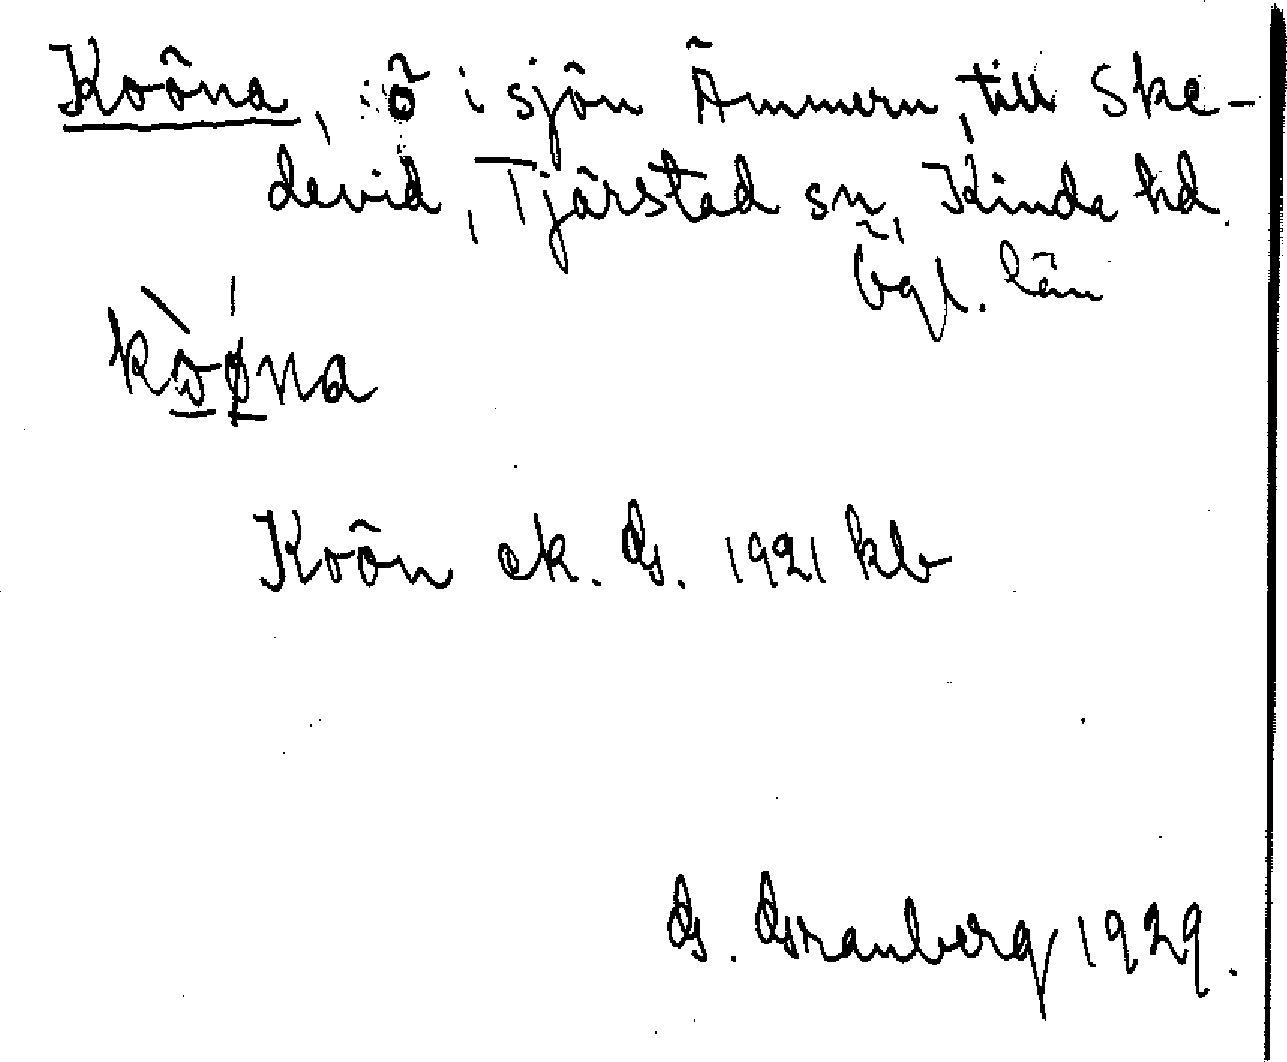 Koöna, ö i sjön Ämmern, till Ske-
devid, Tjärstad sn, Kinda hd.
Ögl. län
kòǿna
Koön ek. G. 1921 kb
G. Granberg 1929.